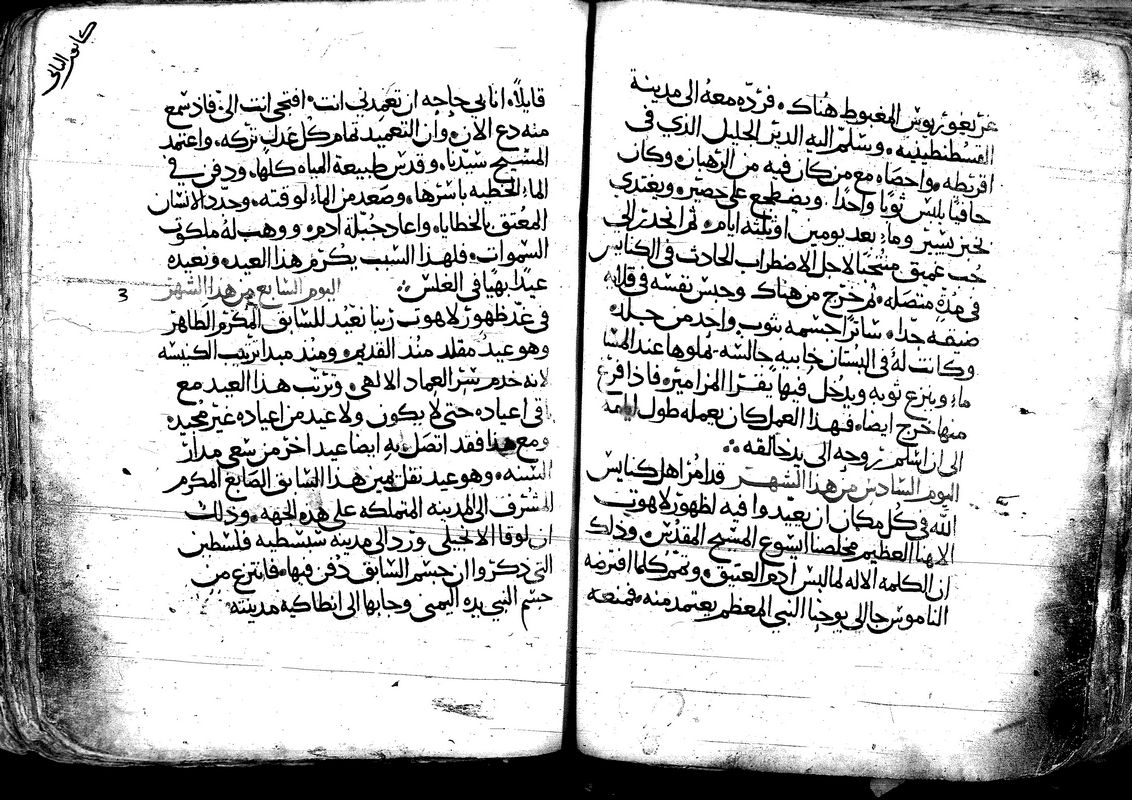 غريغوريوس المغبوط هناك. فرده معه الى مدينة
القسطنطينيه. وسلم اليه الدير الجليل الذي في
اقريطه. واحصاه مع من كان فيه من الرهبان وكان
حافيًا يلبس ثوبًا واحدًا. ويضطجع على حصير. ويغتدي
بخبز يسير وماء بعد يومين او ثلثه ايام. ثم انحدر الى
جب عميق منتحبًا لاجل الاضطراب الحادث في الكنايس
في مدة متصله. ثم خرج من هناك وحبس نفسه في قلايه
ضيقه جدا. ساترًا جسمه بثوب واحد من جلد.
وكانت له في البستان خابيه جالسه. يملوها عند المسا
ماء. وينزع ثوبه ويدخل فيها يقرا المزامير. فاذا فرغ
منها خرج ايضا. فهذا العمل كان يعمله طول ايامه
الى ان اسلم روحه الى يد خالقه.
اليوم السادس من هذا الشهر قد امر اهل كنايس
الله في كل مكان ان يعيدوا فيه لظهور لاهوت
الاهنا العظيم مخلصنا ايسوع المسيح المقدس. وذلك
ان الكلمه الاله لما لبس ادم العتيق. وتمم كلما افترضه
الناموس جا الى يوحنا النبي المعظم يعتمد منه. فمنعه
كانون الثاني
قايلاً. انا بي حاجه ان تعمدني انت. افتجي انت الي. فاذ سمع
منه دع الان. وان التعميد تمام كل عدل تركه. واعتمد
المسيح سيدنا. وقدس طبيعة المياه كلها. ودفن في
الماء الخطيه باسرها. وصعد من الماء لوقته. وجدد الانسان
المعتق بالخطايا. واعاد جبلة ادم. ووهب له ملكوت
السموات. فلهذا السبب يكرم هذا العيد. ونعيده
عيدًا بهيا في الغلس. اليوم السابع من هذا الشهر
3
في غد ظهور لاهوت ربنا نعيد للسابق المكرم الطاهر
وهو عيد مقلد منذ القديم. ومنذ مبدا ترتيب الكنيسه
لانه خدم سر العماد الالهي. وترتب هذا العيد مع
باقي اعياده حتى لا يكون ولا عيد من اعياده غير مجيده
ومع هذا فقد اتصل به ايضا عيد اخر من سعي مدار
السنه. وهو عيد نقل يمين هذا السابق الصابغ المكرم
المشرف الى المدينه المتملكه على هذه الجهه. وذلك
ان لوقا الانجيلي ورد الى مدينه سبسطيه فلسطين
التي ذكروا ان جسم السابق دفن فيها. فانتزع من
جسم النبي يده اليمنى وجابها الى انطاكيه مدينته